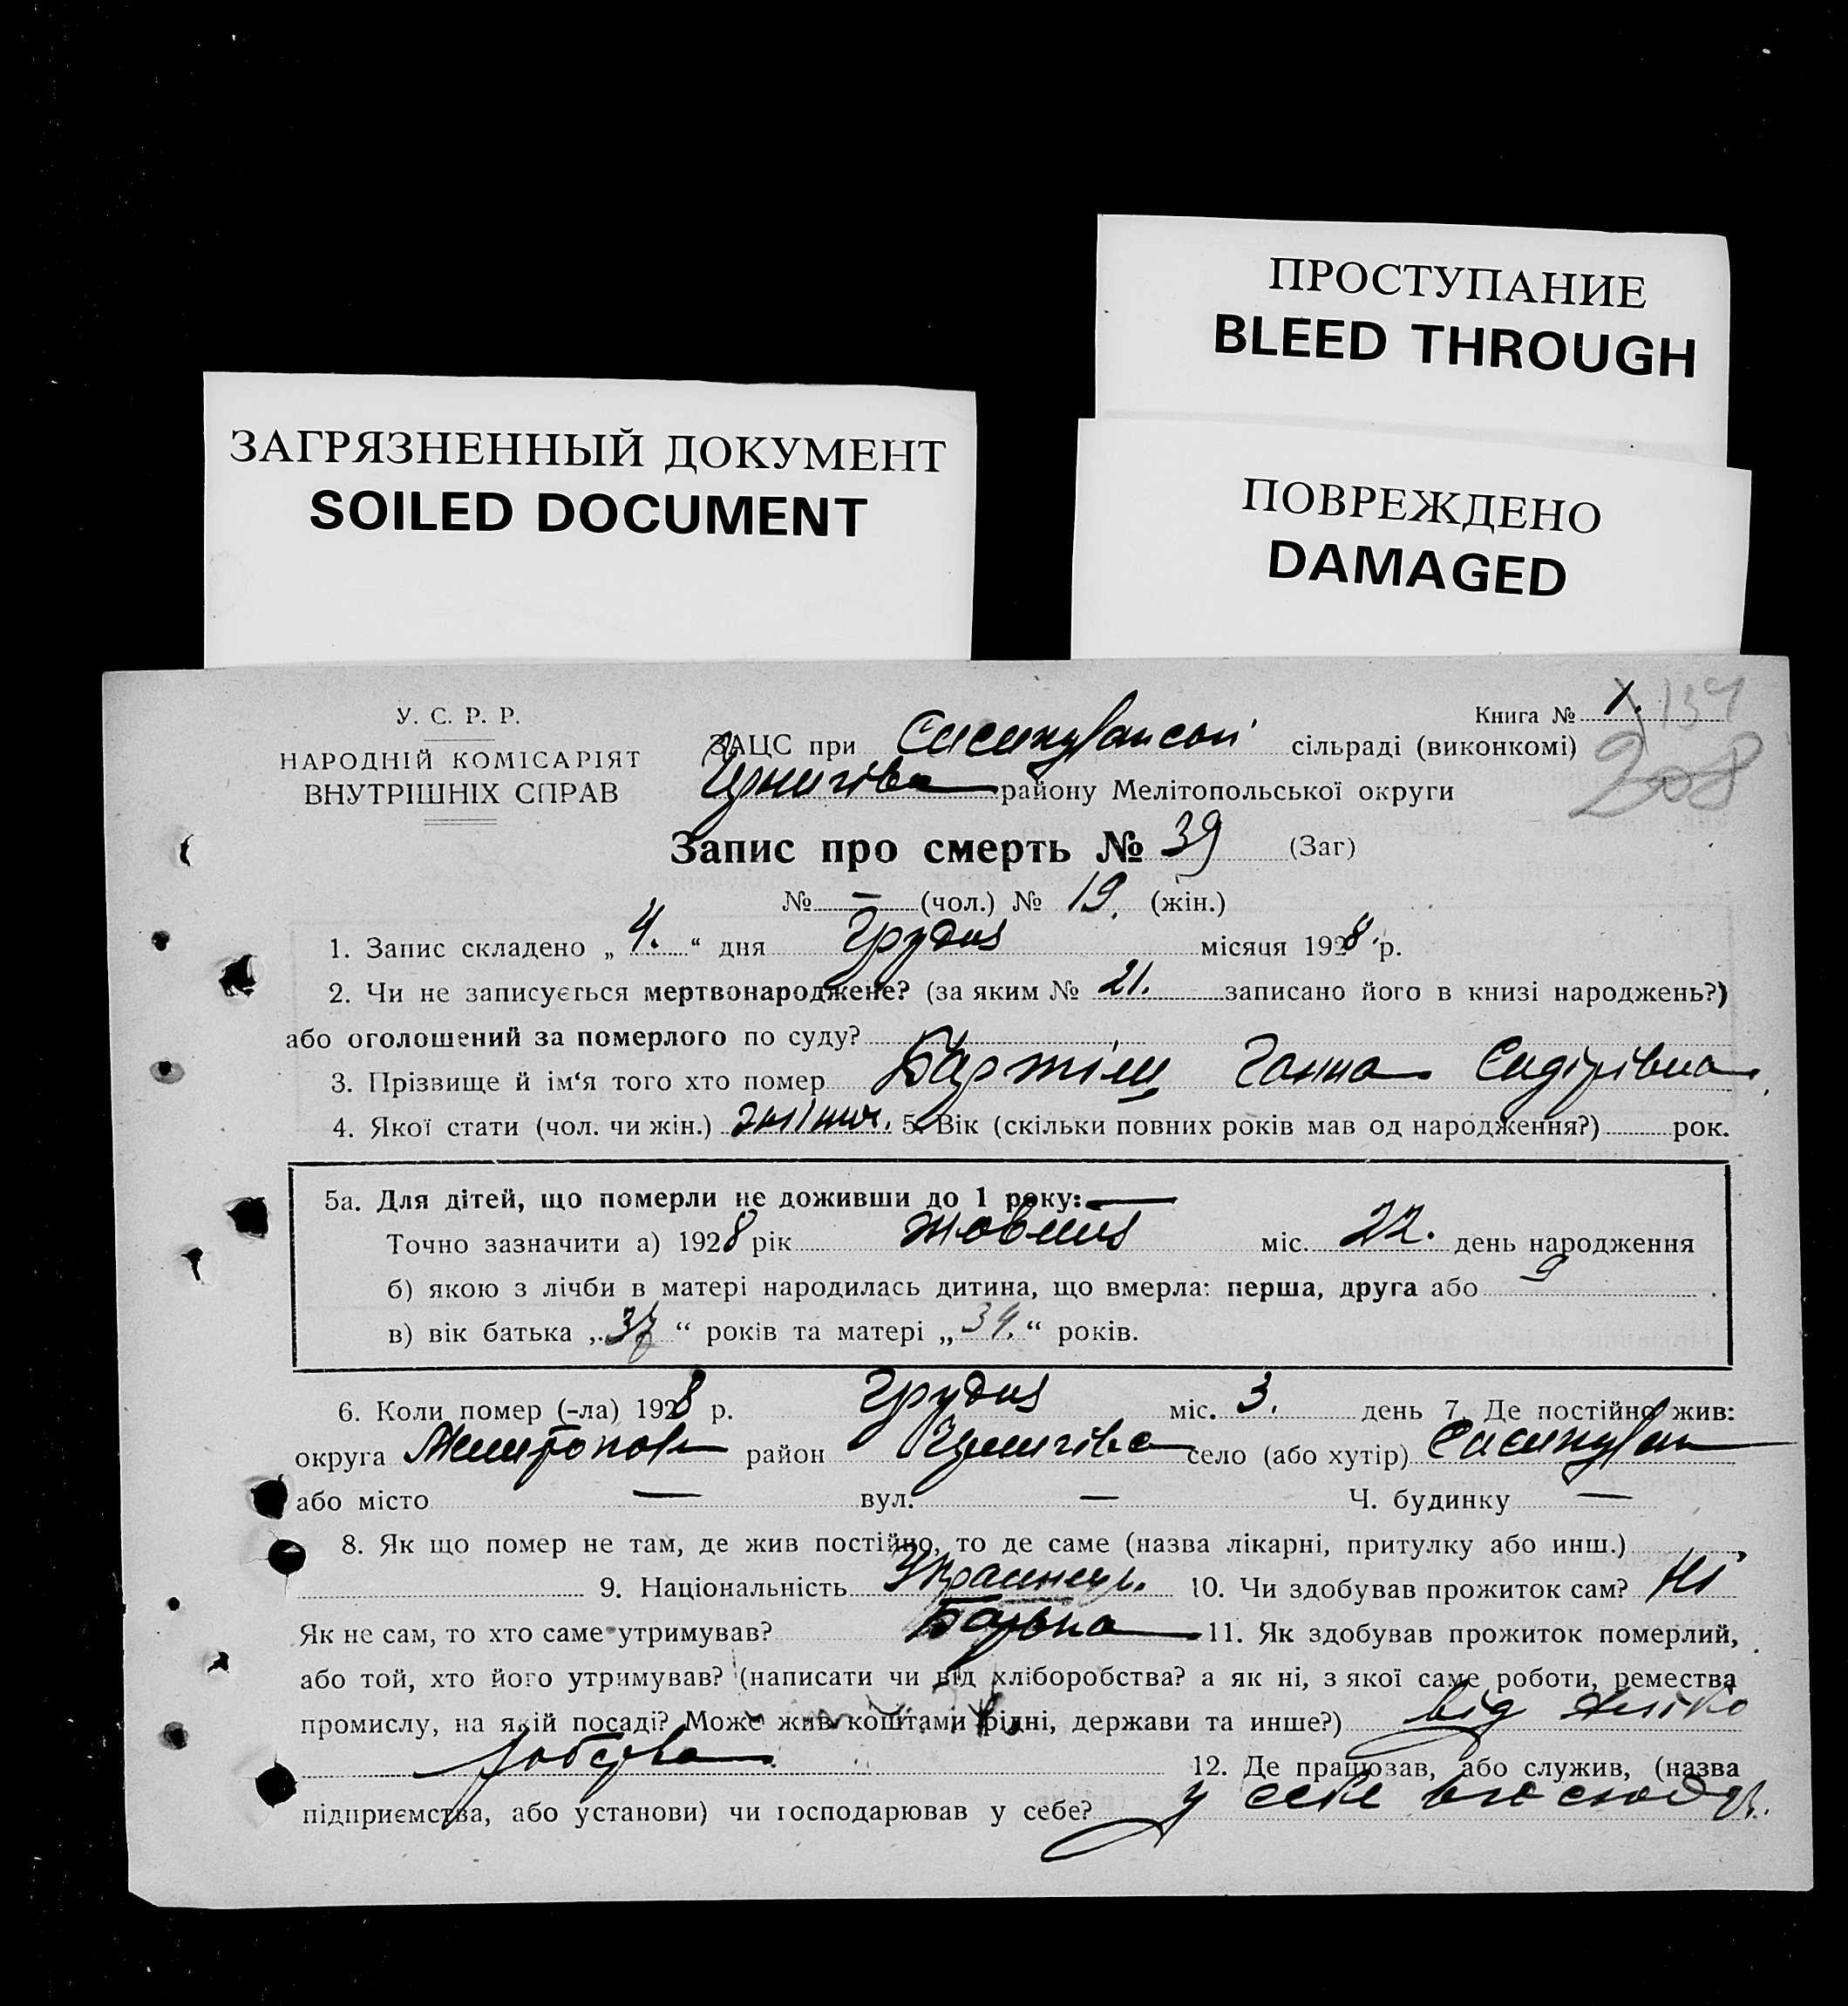 ПРОСТУПАНИЕ
BLEED THROUGH
ЗАГРЯЗНЕННЫЙ ДОКУМЕНТ
SOILED DOCUMENT
ПОВРЕЖДЕНО
DAMAGED
У. С. Р. Р.
НАРОДНІЙ КОМІСАРІЯТ
ВНУТРІШНІХ СПРАВ
Книга № 1.
208
ЗАЦС при сільраді (виконкомі)
району Мелітопольської округи
Запис про смерть № 39 (Заг)
№ — (чол.) № 19. (жін.)
1. Запис складено „ 4. “ дня Грудня місяця 1928 р.
2. Чи не записується мертвонароджене? (за яким № 21. записано його в книзі народжень?)
або оголошений за померлого по суду?
3. Прізвище й ім‘я того хто помер Ганна
4. Якої стати (чол. чи жін.) 5. Вік (скільки повних років мав од народження?) рок.
5а. Для дітей, що померли не доживши до 1 року: —
Точно зазначити а) 1928 рік жовтня міс. 22. день народження
б) якою з лічби в матері народилась дитина, що вмерла: перша, друга або 9 .
в) вік батька „ 37 “ років та матері „ 34. “ років.
6. Коли помер (-ла) 1928 р. Грудня міс. 3. день 7. Де постійно жив:
округа район село (або хутір)
або місто — вул. — Ч. будинку —
8. Як що помер не там, де жив постійно, то де саме (назва лікарні, притулку або инш.)
9. Національність Українець. 10. Чи здобував прожиток сам? Ні
Як не сам, то хто саме утримував? Батько 11. Як здобував прожиток померлий,
або той, хто його утримував? (написати чи від хліборобства? а як ні, з якої саме роботи, ремества
промислу, на якій посаді? Може жив коштами рідні, держави та инше?) від
12. Де працював, або служив, (назва
підприємства, або установи) чи господарював у себе? у себе